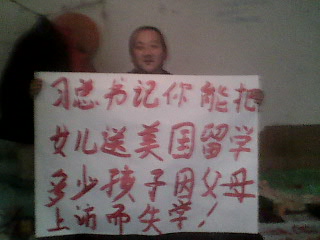 习总书记你能把
女儿送美国留学
多少孩子因父母
上访而失学！